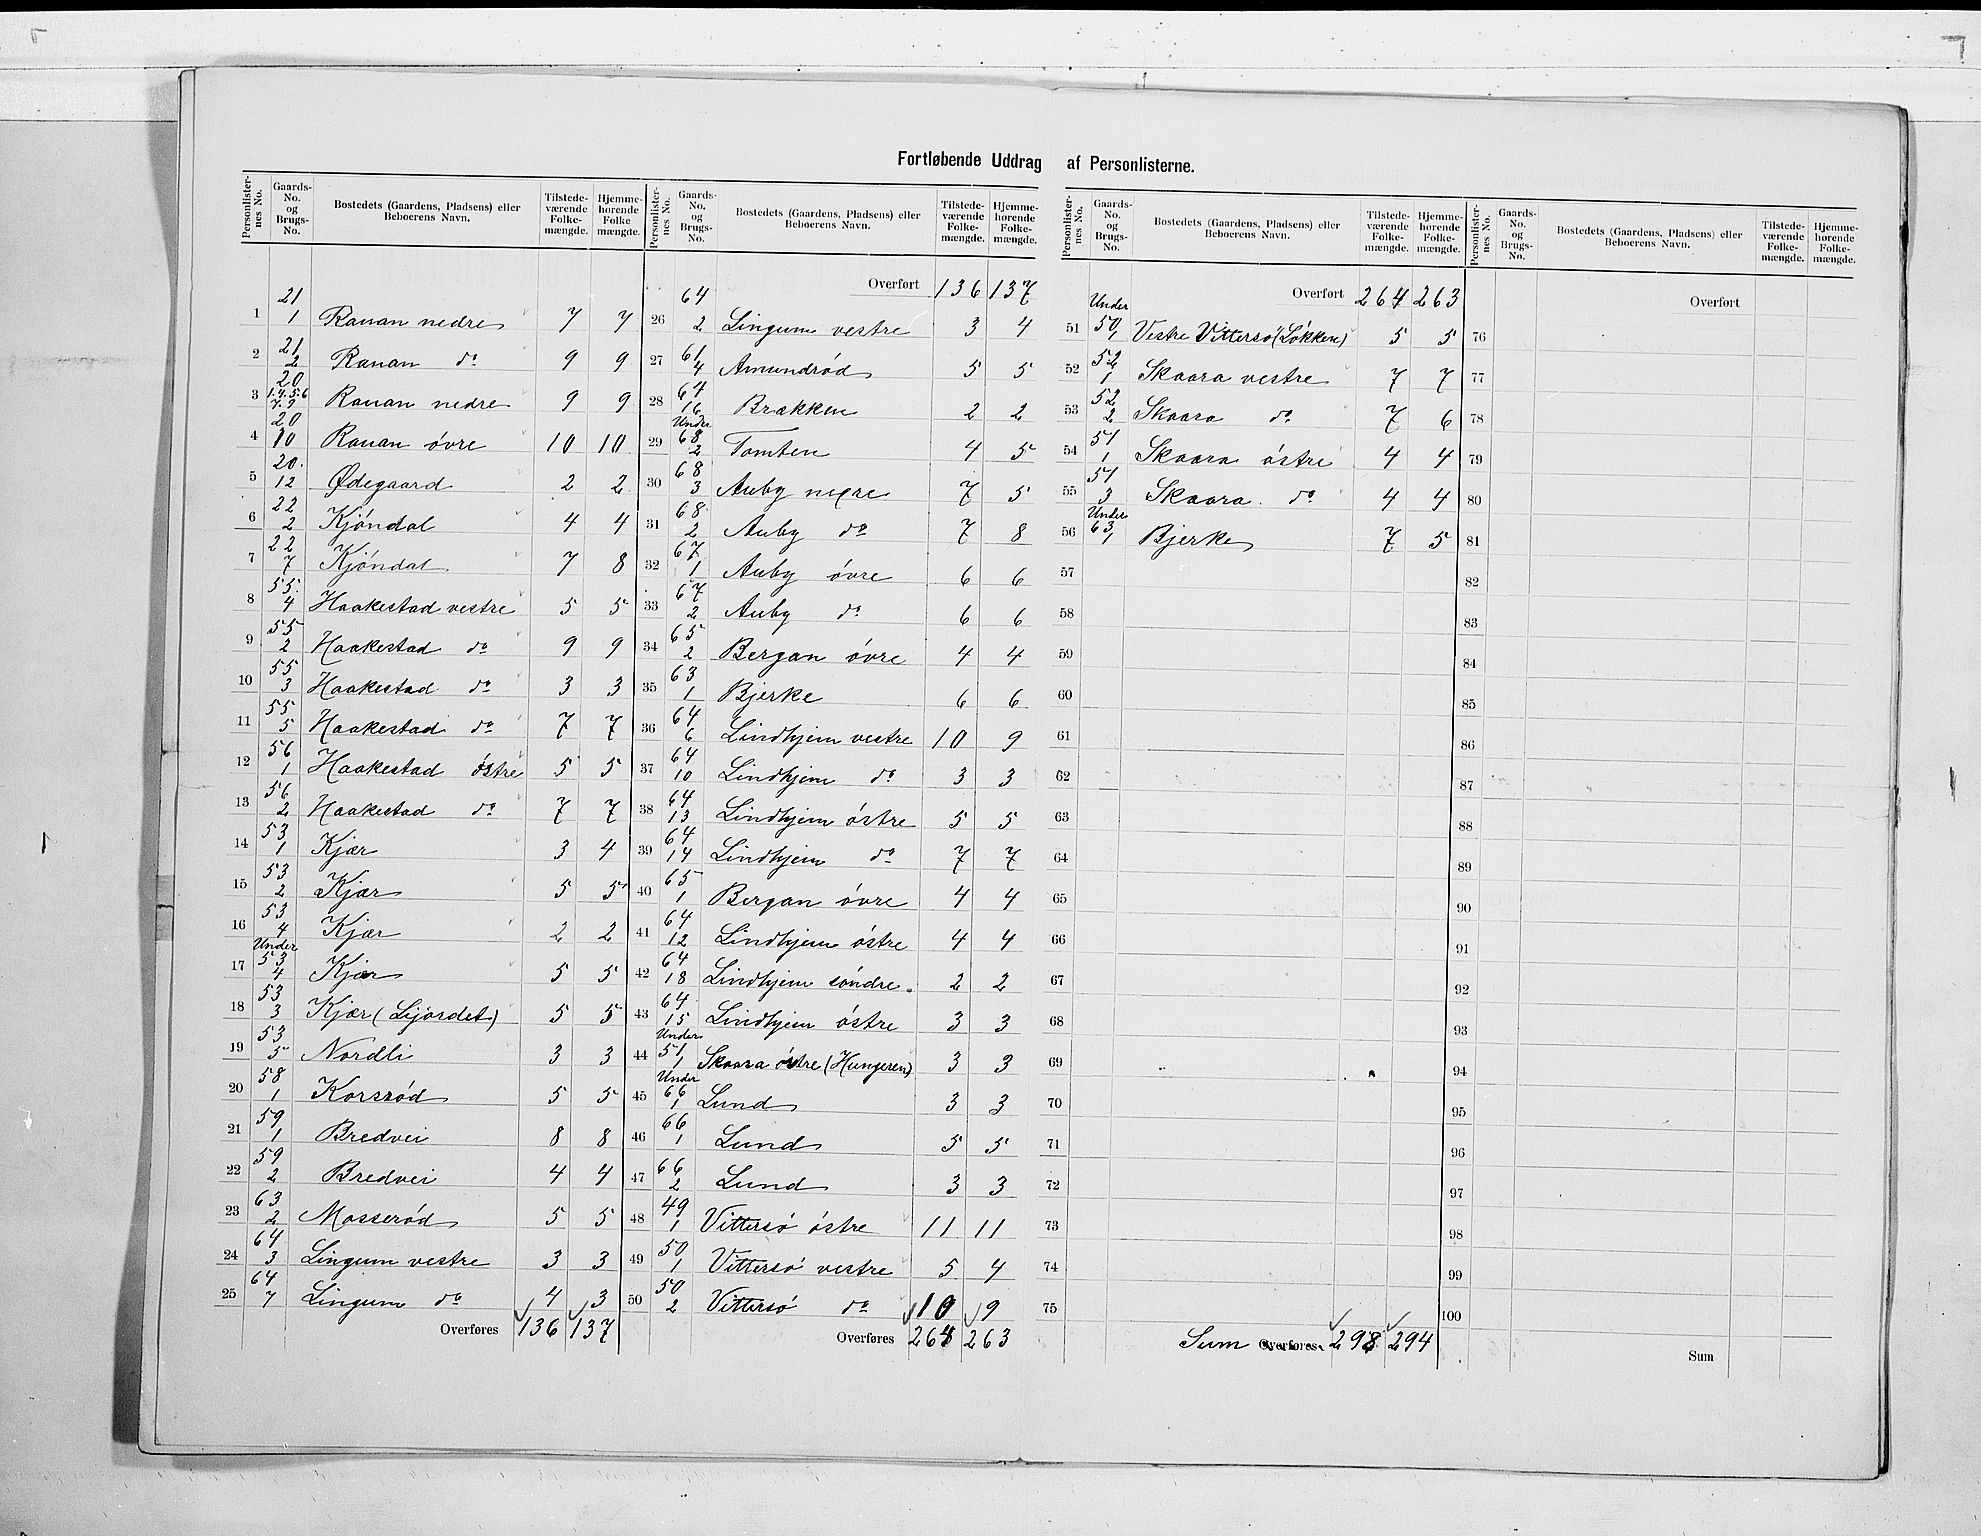 Fortløbende Uddrag af Personlisterne.
Personlister-nes No. Gaards-No. og Brugs-No. Bostedets (Gaardens, Pladsens) eller Beboerens Navn. Tilstede-værende Folke-mængde. Hjemme-hørende Folke mængde.
1 21 1 Rauan nedre 7 7
2 21 2 Rauan do 9 9
3 20 1.4.5.6 7.9 Rauan nedre 9 9
4 20 10 Rauan övre 10 10
5 20. 12 Ødegaard 2 2
6 22 2 Kjöndal 4 4
7 22 7 Kjöndal 7 8
8 55. 4 Haakestad vestre 5 5
9 55 2 Haakestad do 9 9
10 55 3 Haakestad do 3 3
11 55 5 Haakestad do 7 7
12 56 1 Haakestad östre 5 5
13 56 2 Haakestad do 7 7
14 53 1 Kjær 3 4
15 53 2 Kjær 5 5
16 53 4 Kjær 2 2
17 Under 53 4 Kjær 5 5
18 53 3 Kjær (Lijordet) 5 5
19 53 5 Nordli 3 3
20 58 1 Korsröd 5 5
21 59 1 Bredvei 8 8
22 59 2 Bredvei 4 4
23 63 2 Mosseröd 5 5
24 64 3 Lingum vestre 3 3
25 64 7 Lingum do 4 3
Overføres 136 137
Personlister-nes No. Gaards-No. og Brugs-No. Bostedets (Gaardens, Pladsens) eller Beboerens Navn. Tilstede-værende Folke-mængde. Hjemme-hørende Folke-mængde.
Overført 136 137
26 64 2 Lingum vestre 3 4
27 61 4 Amundröd 5 5
28 64 16 Brækken 2 2
29 Under 68 2 Tomten 4 5
30 68 3 Auby nedre 7 5
31 68 2 Auby do 7 8
32 67 1 Auby övre 6 6
33 67 2 Auby do 6 6
34 65 2 Bergan övre 4 4
35 63 1 Bjerke 6 6
36 64 6 Lindhjem vestre 10 9
37 64 10 Lindhjem do 3 3
38 64 13 Lindhjem östre 5 5
39 64 14 Lindhjem do 7 7
40 65 1 Bergan övre 4 4
41 64 12 Lindhjem östre 4 4
42 64 18 Lindhjem söndre. 2 2
43 64 15 Lindhjem östre 3 3
44 Under 51 1 Skaara östre (Hungeren) 3 3
45 Under 66 1 Lund 3 3
46 66 1 Lund 5 5
47 66 2 Lund 3 3
48 49 1 Vittersö östre 11 11
49 50 1 Vittersö vestre 5 4
50 50 2 Vittersö do 10 9
Overføres 264 263
Personlister-nes No. Gaards-No. og Brugs-No. Bostedets (Gaardens, Pladsens) eller Beboerens Navn. Tilstede-værende Folke-mængde. Hjemme-hørende Folke-mængde.
Overført 264 263
51 Under 50 1 Vestre Vittersö (Lökken) 5 5
52 52 1 Skaara vestre 7 7
53 52 2 Skaara do 7 6
54 51 1 Skaara östre 4 4
55 51 3 Skaara do 4 4
56 Under 63 1 Bjerke 7 5
57
58
59
60
61
62
63
64
65
66
67
68
69
70
71
72
73
74
75
Sum Overføres 298 294
Personlister-nes No. Gaards-No. og Brugs-No. Bostedets (Gaardens, Pladsens) eller Beboerens Navn. Tilstede-værende Folke-mængde. Hjemme-hørende Folke-mængde.
Overført
76
77
78
79
80
81
82
83
84
85
86
87
88
89
90
91
92
93
94
95
96
97
98
99
100
Sum